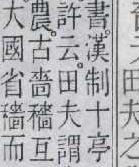 書。漢制十亭
許云。田夫謂
農。古嗇穡互
大國省穡而